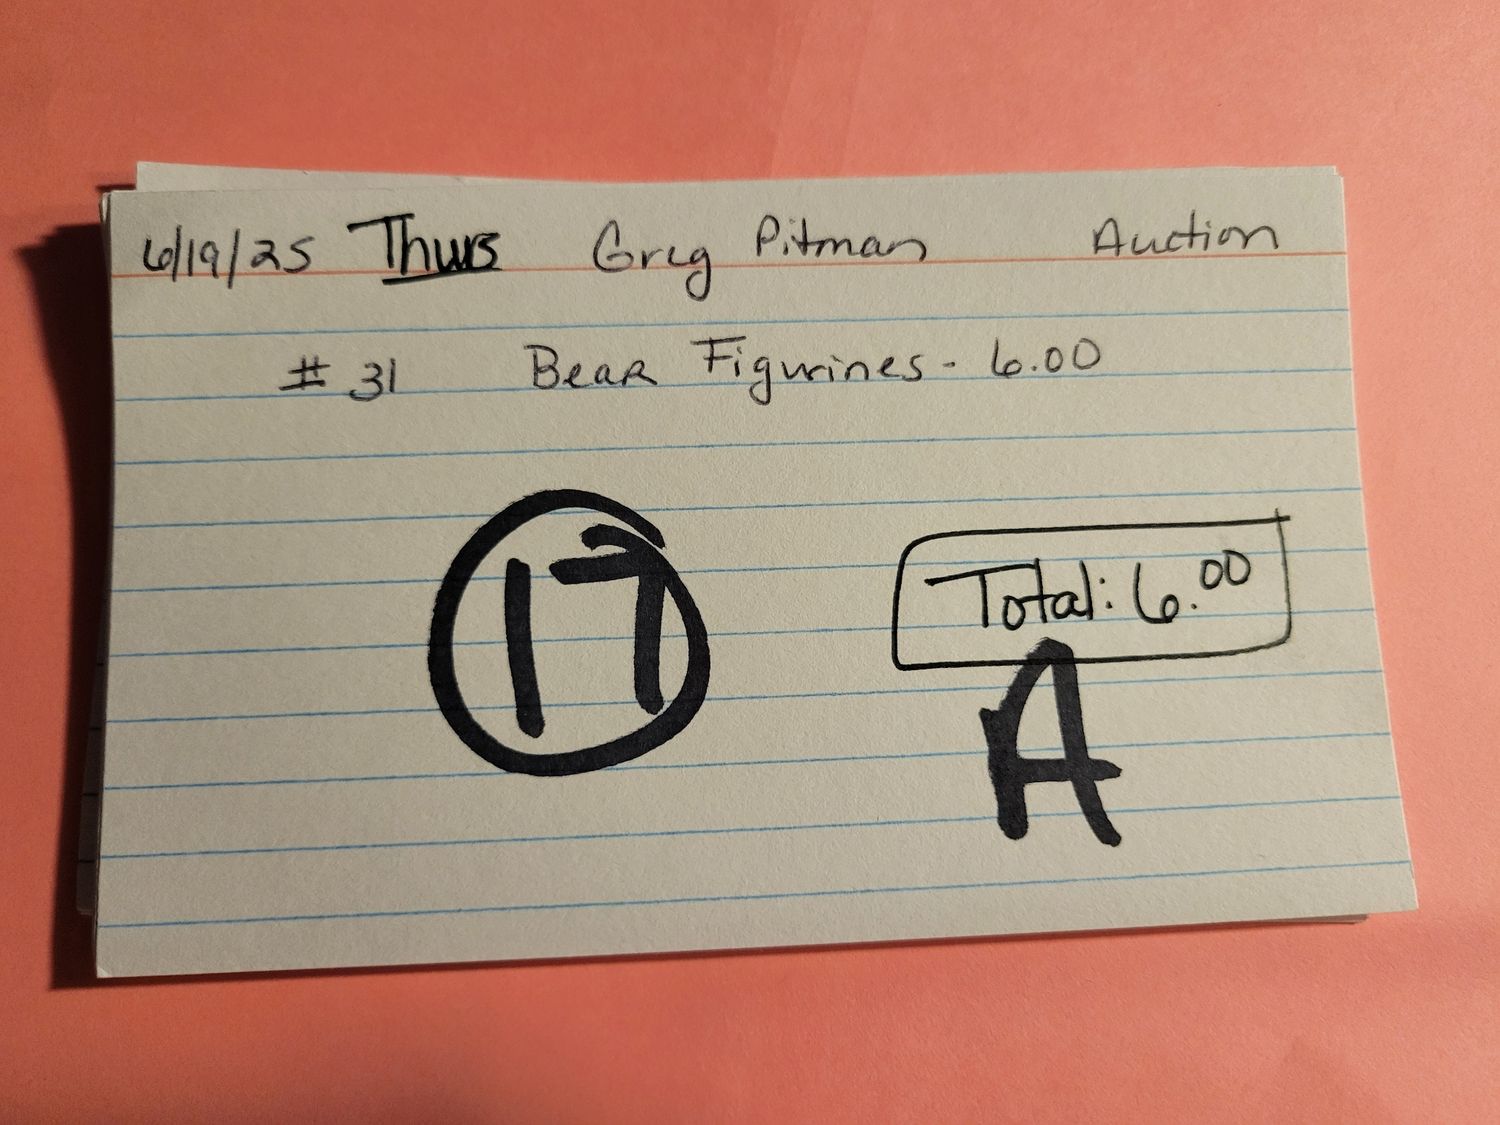 6/19/25 Thurs Greg Pitman Auction
# 31 Bear Figurines - 6.00
17
Total: 6.00
A